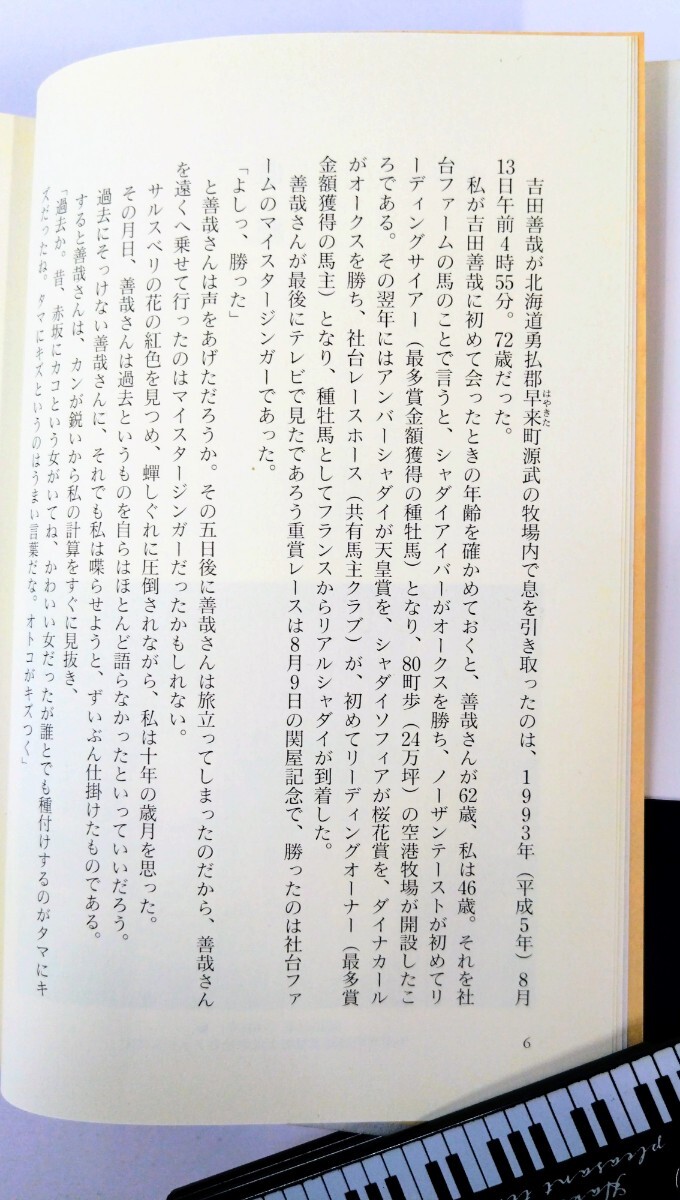 吉田善哉が北海道勇払郡早来町源武の牧場内で息を引き取ったのは、1993年（平成5年）8月
はやきた
13日午前4時55分。72歳だった。
私が吉田善哉に初めて会ったときの年齢を確かめておくと、善哉さんが62歳、私は46歳。それを社
台ファームの馬のことで言うと、シャダイアイバーがオークスを勝ち、ノーザンテーストが初めてリ
ーディングサイアー（最多賞金額獲得の種牡馬）となり、80町歩（24万坪）の空港牧場が開設したこ
ろである。その翌年にはアンバーシャダイが天皇賞を、シャダイソフィアが桜花賞を、ダイナカール
がオークスを勝ち、社台レースホース（共有馬主クラブ）が、初めてリーディングオーナー（最多賞
金額獲得の馬主）となり、種牡馬としてフランスからリアルシャダイが到着した。
善哉さんが最後にテレビで見たであろう重賞レースは8月9日の関屋記念で、勝ったのは社台ファ
ームのマイスタージンガーであった。
「よしっ、勝った」
と善哉さんは声をあげただろうか。その五日後に善哉さんは旅立ってしまったのだから、善哉さん
を遠くへ乗せて行ったのはマイスタージンガーだったかもしれない。
サルスベリの花の紅色を見つめ、蟬しぐれに圧倒されながら、私は十年の歳月を思った。
その月日、善哉さんは過去というものを自らはほとんど語らなかったといっていいだろう。
過去にそっけない善哉さんに、それでも私は喋らせようと、ずいぶん仕掛けたものである。
すると善哉さんは、カンが鋭いから私の計算をすぐに見抜き、
「過去か。昔、赤坂にカコという女がいてね、かわいい女だったが誰とでも種付けするのがタマにキ
ズだったね。タマにキズというのはうまい言葉だな。オトコがキズつく」
6
pleasant